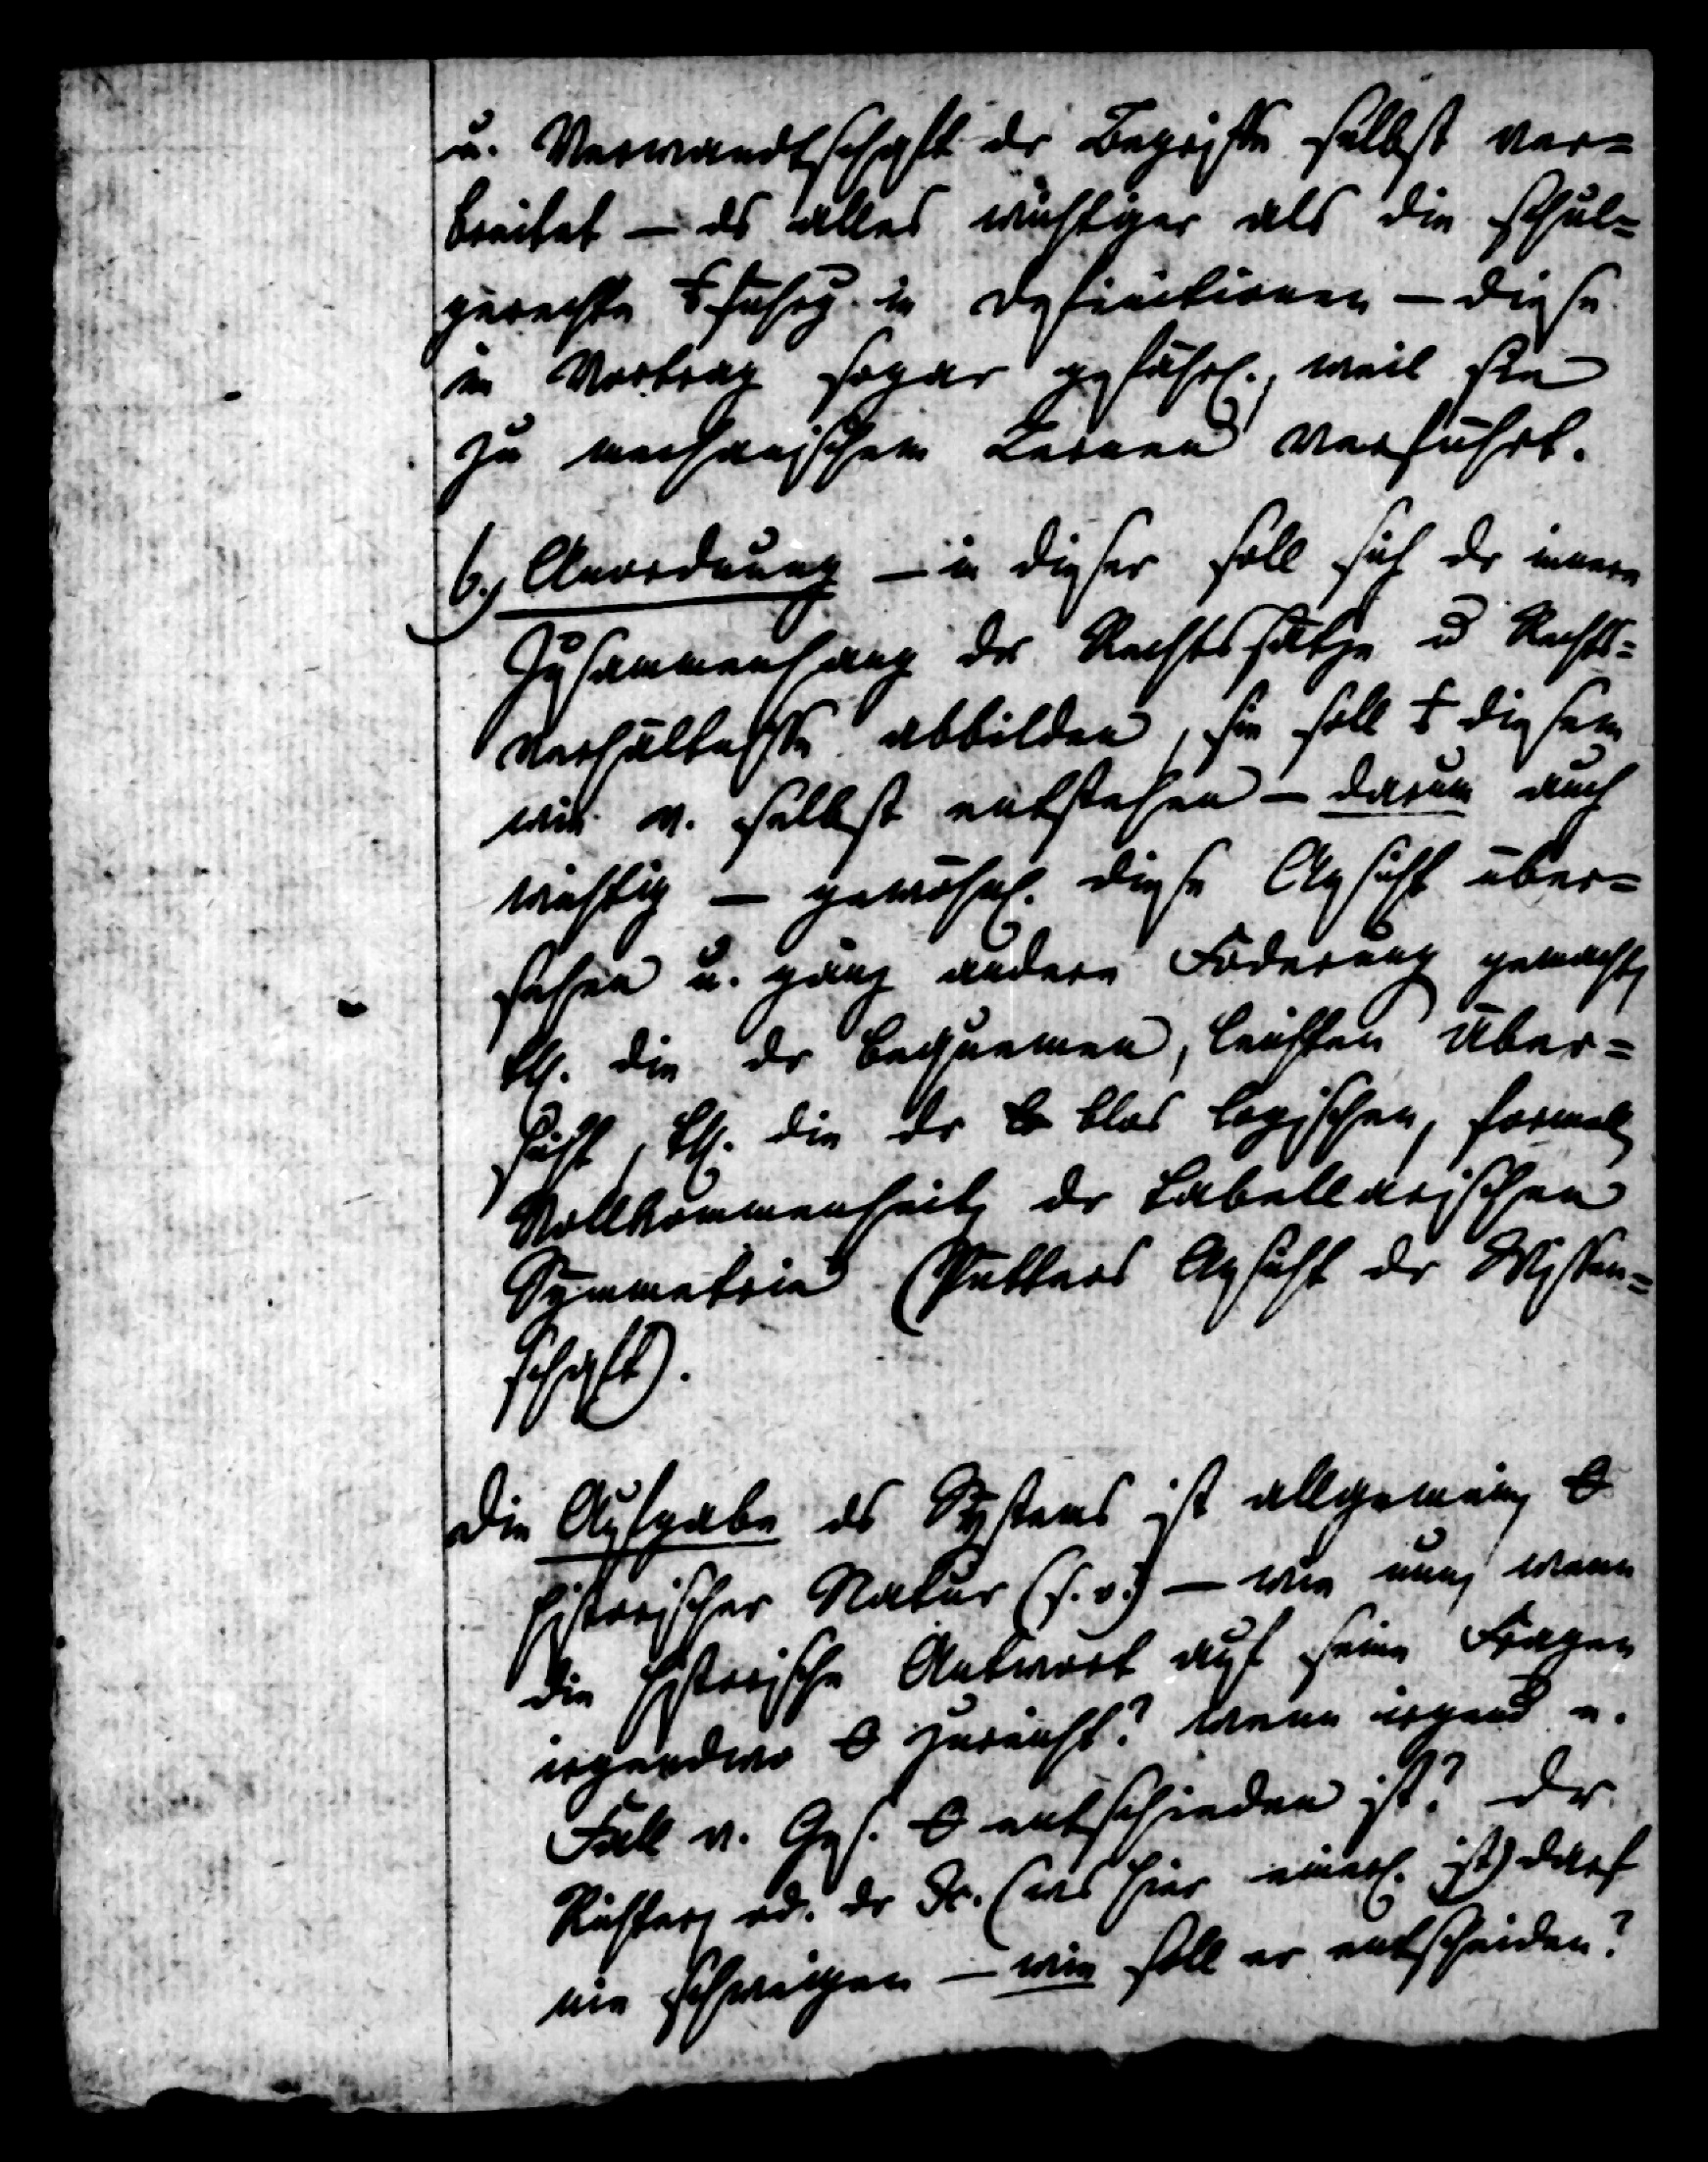 u. Verwandtschaft der Begriffe selbst ver=
breitet – ds alles wichtiger als die schul=
gerechte Fassung in Definitionen – diese
im Vortrag sogar gefährl., weil sie
zu mechanischem Lernen verführt.
b.) Anordnung – in dieser soll sich dr innere
Zusammenhang der Rechtssätze u Rechts=
verhältnisse abbilden, sie soll diesem
wie v. selbst entstehen – darum auch
wichtig – gewöhnl. diese Ansicht über=
sehen u. ganz andere Foderung gemacht,
th. die dr bequemen, leichten Über=
sicht, th. die dr blos logischen, formalen
Vollkommenheit, dr tabellarischen
Symmetrie (Pütters Ansicht dr Wissen=
schaft).
Die Aufgabe ds Systems ist allgemein
historischer Natur (s. o.) – wie nun, wenn
die historische Antwort auf seine Fragen
irgendwo zureicht? wenn irgend e.
Fall v. Ges. entschieden ist? Dr
Richter, od. dr (was hier einerl. ist) darf
nie schweigen – wie soll er entscheiden?